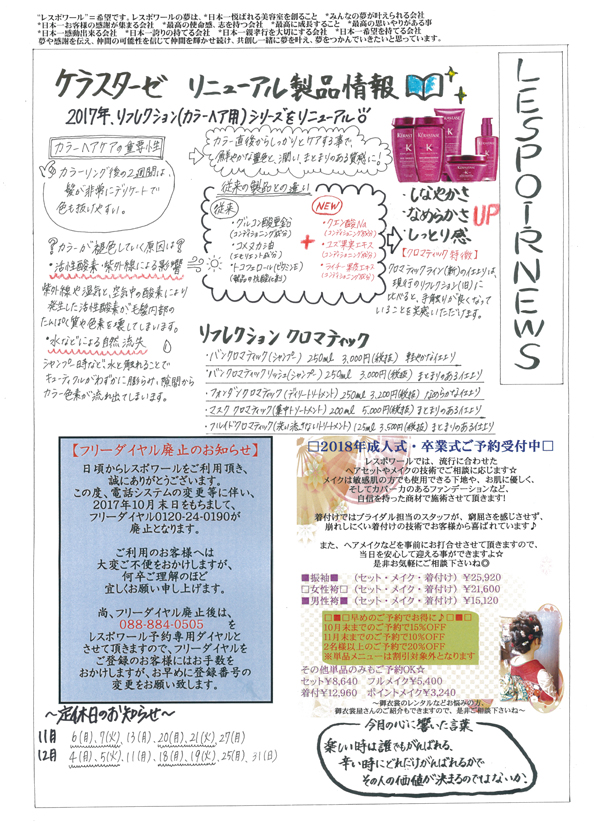 "レスポワール"＝希望です。レスポワールの夢は、*日本一悦ばれる美容室を創ること　*みんなの夢が叶えられる会社
*日本一お客様の感謝が集まる会社　*最高の使命感、志を持つ会社　*日本一成長すること　*最高の思いやりがある事
*日本一感動出来る会社　*日本一誇りの持てる会社　*日本一親孝行を大切にする会社　*日本一希望を持てる会社
夢や感謝を伝え、仲間の可能性を信じて仲間を輝かせ続け、共創し一緒に夢を叶え、夢をつかんでいきたいと思っています。
LESPOIRNEWS
ケラスターゼ　リニューアル製品情報
2017年、リフレクション(カラーヘア用)シリーズをリニューアル!!
カラーヘアケアの重要性
カラーリング後の2週間は、
髪が非常にデリケートで
色も抜けやすい。
カラー直後からしっかりとケアする事で、
鮮やかな重色と、潤い、まとまりのある質感に!
KÉRASTASE
しなやかさ
なめらかさ UP
しっとり感
従来の製品との違い
従来
・グルコン酸亜鉛
(コンディショニング成分)
・コメヌカ油
(エモリエント成分)
・トコフェロール(ビタミンE)
(製品の抗酸化剤)
+
NEW
・クエン酸Na
(コンディショニング成分)
・ユズ果実エキス
(コンディショニング成分)
・ライチー種子エキス
(コンディショニング成分)
【クロマティック特徴】
クロマティックライン(新)のイエリは、
現行のリフレクション(旧)に
比べると、手触りが良くなって
いることを実感いただけます。
カラーが褪色していく原因は
・活性酸素・紫外線による影響
紫外線や湿気と、空気中の酸素により
発生した活性酸素が毛髪内部の
たんぱく質や色素を壊してしまいます。
・水などによる自然流失
シャンプー時など、水と触れることで
キューティクルがわずかに膨らみ、隙間から
カラー色素が流れ出てしまいます。
リフレクション クロマティック
・バンクロマティック(シャンプー)　250ml　3,000円(税抜)　軽やかな仕上り
・バンクロマティックリッシュ(シャンプー)　250ml　3,000円(税抜)　まとまりのある仕上り
・フォンダンクロマティック(デイリートリートメント)　250ml　3,200円(税抜)　なめらかな仕上り
・マスククロマティック(集中トリートメント)　200ml　5,000円(税抜)　まとまりのある仕上り
・フルイドクロマティック(洗い流さないトリートメント)　125ml　3,500円(税抜)　まとまりのある仕上り
【フリーダイヤル廃止のお知らせ】
日頃からレスポワールをご利用頂き、
誠にありがとうございます。
この度、電話システムの変更等に伴い、
2017年10月末日をもちまして、
フリーダイヤル0120-24-0190が
廃止となります。
ご利用のお客様へは
大変ご不便をおかけしますが、
何卒ご理解のほど
宜しくお願い申し上げます。
尚、フリーダイヤル廃止後は、
088-884-0505　を
レスポワール予約専用ダイヤルと
させて頂きますので、フリーダイヤルを
ご登録のお客様にはお手数を
おかけしますが、お早めに登録番号の
変更をお願い致します。
□2018年成人式・卒業式ご予約受付中□
レスポワールでは、流行に合わせた
ヘアセットやメイクの技術でご相談に応じます☆
メイクは敏感肌の方でも使用できる下地や、お肌に優しく、
そしてカバー力のあるファンデーションなど、
自信を持った商材で施術させて頂きます!
着付けではブライダル担当のスタッフが、窮屈さを感じさせず、
崩れしにくい着付けの技術でお客様から喜ばれています♪
また、ヘアメイクなどを事前にお打合せさせて頂きますので、
当日を安心して迎える事ができますよ☆
是非お気軽にご相談下さいね◎
■振袖■　(セット・メイク・着付け) ¥25,920
□女性袴□　(セット・メイク・着付け) ¥21,600
■男性袴■　(セット・メイク・着付け) ¥15,120
□■□早めのご予約でお得に♪□■□
10月末までのご予約で15%OFF
11月末までのご予約で10%OFF
2名様以上のご予約で20%OFF
※単品メニューは割引対象外となります
その他単品のみもご予約OK☆
セット¥8,640　フルメイク¥5,400
着付¥12,960　ポイントメイク¥3,240
～御衣裳のレンタルなどお悩みの方、
御衣裳屋さんのご紹介もできますので、是非ご相談下さいね～
～定休日のお知らせ～
11月　6(月)、7(火)、13(月)、20(月)、21(火)、27(月)
12月　4(月)、5(火)、11(月)、18(月)、19(火)、25(月)、31(日)
今月の心に響いた言葉
楽しい時は誰でもがんばれる、
辛い時にどれだけがんばれるかで
その人の価値が決まるのではないか。